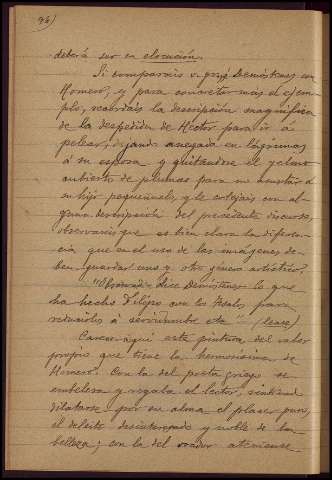 96)
deberá ser su elocución.
Si comparáis v. gr. á Demóstenes con
Homero, y para concretar más el ejem-
plo, recordáis la descripción magnífica
de la despedida de Héctor para ir á
pelear, dejando anegada en lágrimas
á su esposa y quitándose el yelmo
cubierto de plumas para no asustar á
su hijo pequeñuelo, y le cotejáis con al-
guna descripción del precedente discurso,
observaréis que es bien clara la diferen-
cia que en el uso de las imágenes de-
ben guardar uno y otro género artístico.
"Observad dice Demóstenes lo que
ha hecho Filipo con los Tesalos para
reducirlos á servidumbre etc" (lease)
Carece aquí esta pintura del valor
propio que tiene la hermosísima de
Homero. Con la del poeta griego se
embelesa y regala el lector, sintiendo
dilatarse por su alma el placer puro,
el deleite desinteresado y noble de la
belleza; con la del orador ateniense